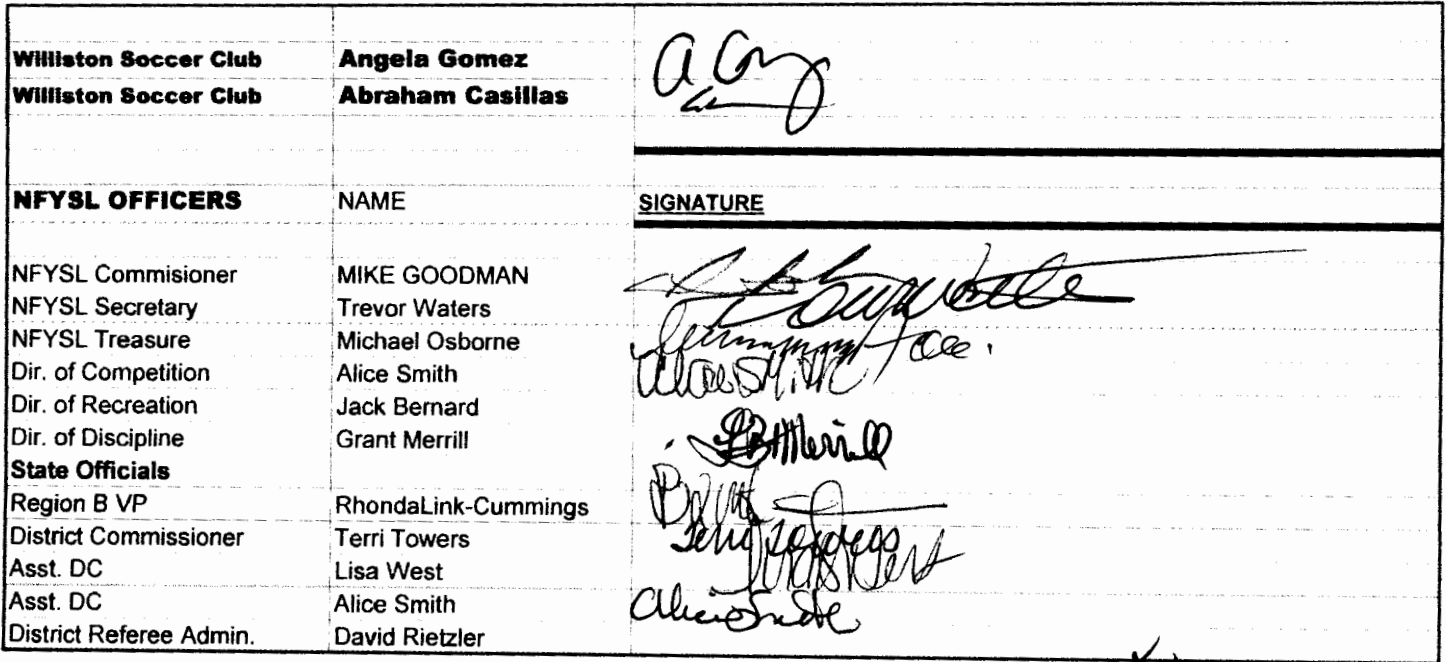 Williston Soccer Club Angela Gomez
Williston Soccer Club Abraham Casillas
NFYSL OFFICERS NAME SIGNATURE
NFYSL Commisioner MIKE GOODMAN
NFYSL Secretary Trevor Waters
NFYSL Treasure Michael Osborne
Dir. of Competition Alice Smith Alice Smith
Dir. of Recreation Jack Bernard
Dir. of Discipline Grant Merrill Merrill
State Officials
Region B VP RhondaLink-Cummings
District Commissioner Terri Towers Terri Towers
Asst. DC Lisa West Lisa West
Asst. DC Alice Smith Alice Smith
District Referee Admin. David Rietzler